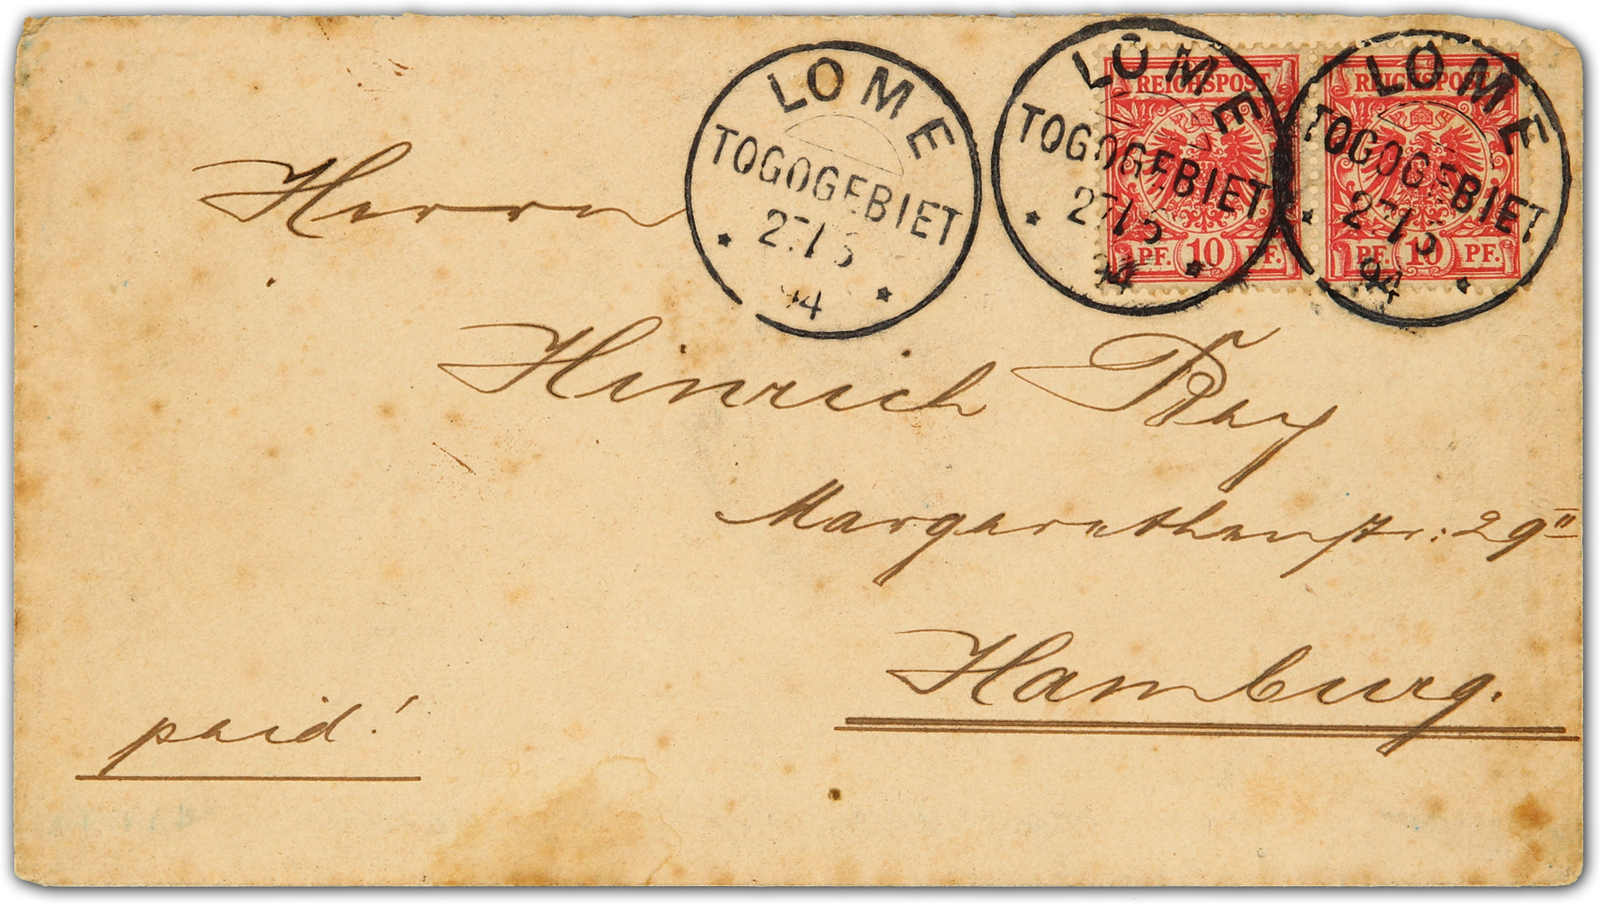 LOME
TOGOGEBIET
27/3
94
LOME
TOGOGEBIET
27/3
94
LOME
TOGOGEBIET
27/3
94
REICHSPOST
PF. 10 PF.
REICHSPOST
PF. 10 PF.
Herrn
Hinrich Bay
Margarethenstr: 29 II
Hamburg.
paid!